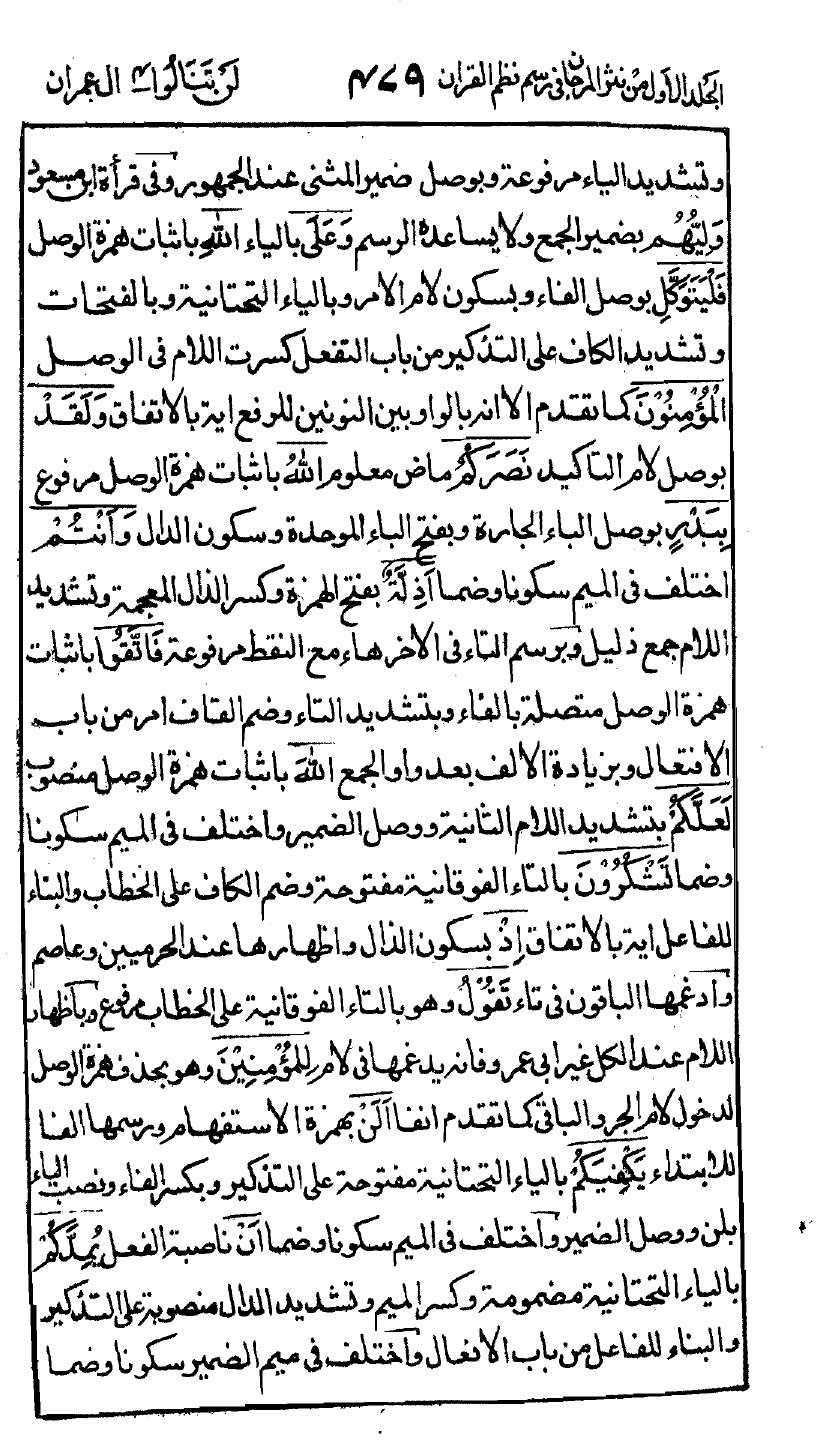 الجلد الاول من نثر المرجان في رسم نظم القران ٤٧٩ لَنْ تَنَالُوا ٤ ال عمران
وتشديد الياء مرفوعة وبوصل ضمير المثنى عند الجمهور وفى قرأة ابن مسعود
وَلِيُّهُم بضمير الجمع ولا يساعده الرسم وَعَلَى بالياء اللهِ باثبات همزة الوصل
فَلْيَتَوَكَّلِ بوصل الفاء وبسكون لام الامر وبالياء التحتانية وبالفتحات
وتشديد الكاف على التذكير من باب التفعل كسرت اللام فى الوصل
الْمُؤْمِنُوْنَ كما تقدم الا انه بالواو بين النونين للرفع اية بالاتفاق وَلَقَدْ
بوصل لام التاكيد نَصَرَكُمُ ماض معلوم اللهُ باثبات همزة الوصل مرفوع
بِبَدْرٍ بوصل الباء الجارة وبفتح الباء الموحدة وسكون الدال وَأَنْتُمْ
اختلف فى الميم سكونا وضما أَذِلَّةٌ بفتح الهمزة وكسر الذال المعجمة وتشديد
اللام جمع ذليل وبرسم التاء فى الاخر هاء مع النقط مرفوعة فَاتَّقُوا باثبات
همزة الوصل متصلة بالفاء وبتشديد التاء وضم القاف امر من باب
الافتعال وبزيادة الالف بعد واو الجمع اللهَ باثبات همزة الوصل منصوب
لَعَلَّكُمْ بتشديد اللام الثانية ووصل الضمير واختلف فى الميم سكونا
وضما تَشْكُرُوْنَ بالتاء الفوقانية مفتوحة وضم الكاف على الخطاب والبناء
للفاعل اية بالاتفاق إِذْ بسكون الذال واظهارها عند الحرميين وعاصم
وادغمها الباقون فى تاء تَقُوْلُ وهو بالتاء الفوقانية على الخطاب مرفوع وباظهار
اللام عند الكل غير ابى عمرو فانه يدغمها فى لام لِلْمُؤْمِنِيْنَ وهو بحذف همزة الوصل
لدخول لام الجر والباقى كما تقدم انفا أَلَنْ بهمزة الاستفهام ورسمها الفا
للابتداء يَكْفِيَكُمْ بالياء التحتانية مفتوحة على التذكير وبكسر الفاء ونصب الياء
بلن ووصل الضمير واختلف فى الميم سكونا وضما أَنْ ناصبة الفعل يُمِدَّكُمْ
بالياء التحتانية مضمومة وكسر الميم وتشديد الدال منصوبة على التذكير
والبناء للفاعل من باب الافعال واختلف فى ميم الضمير سكونا وضما